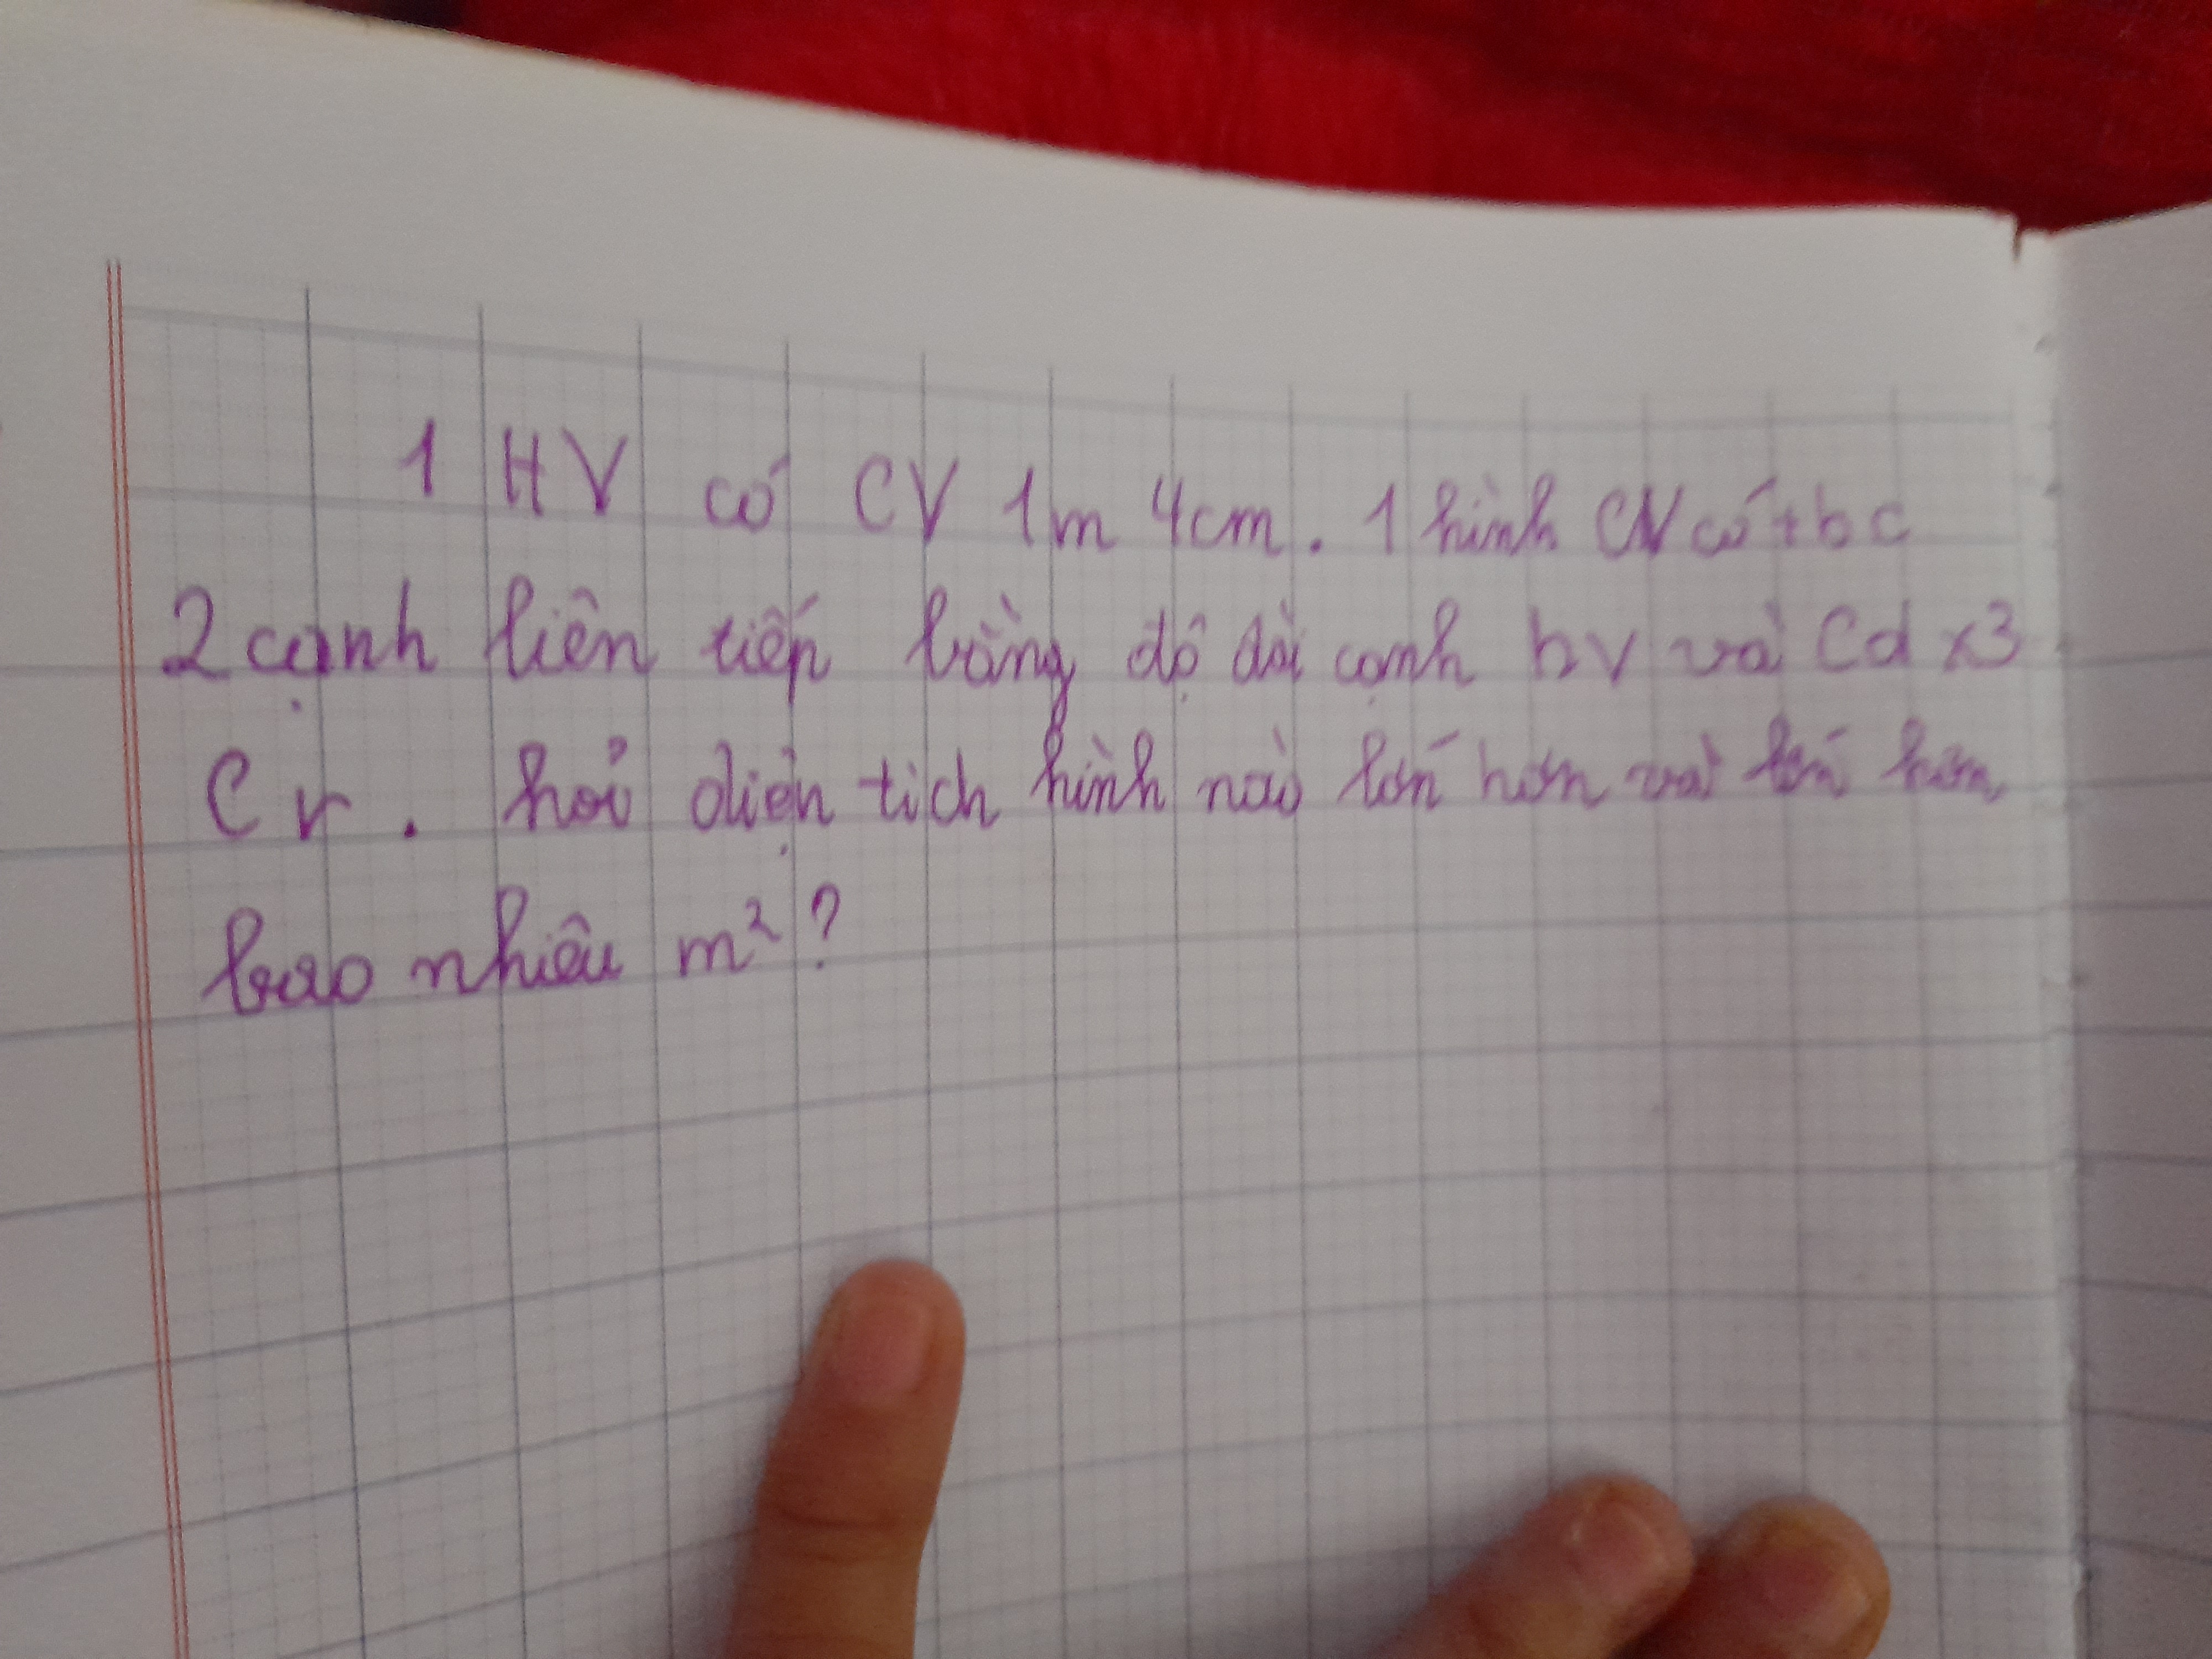 1 HV có CV 1m 4cm. 1 hình CN có tbc
2 cạnh liên tiếp bằng độ dài cạnh hv và Cd x3
Cr. hỏi diện tich hình nào lớn hơn và lớn hơn
bao nhiêu m²?